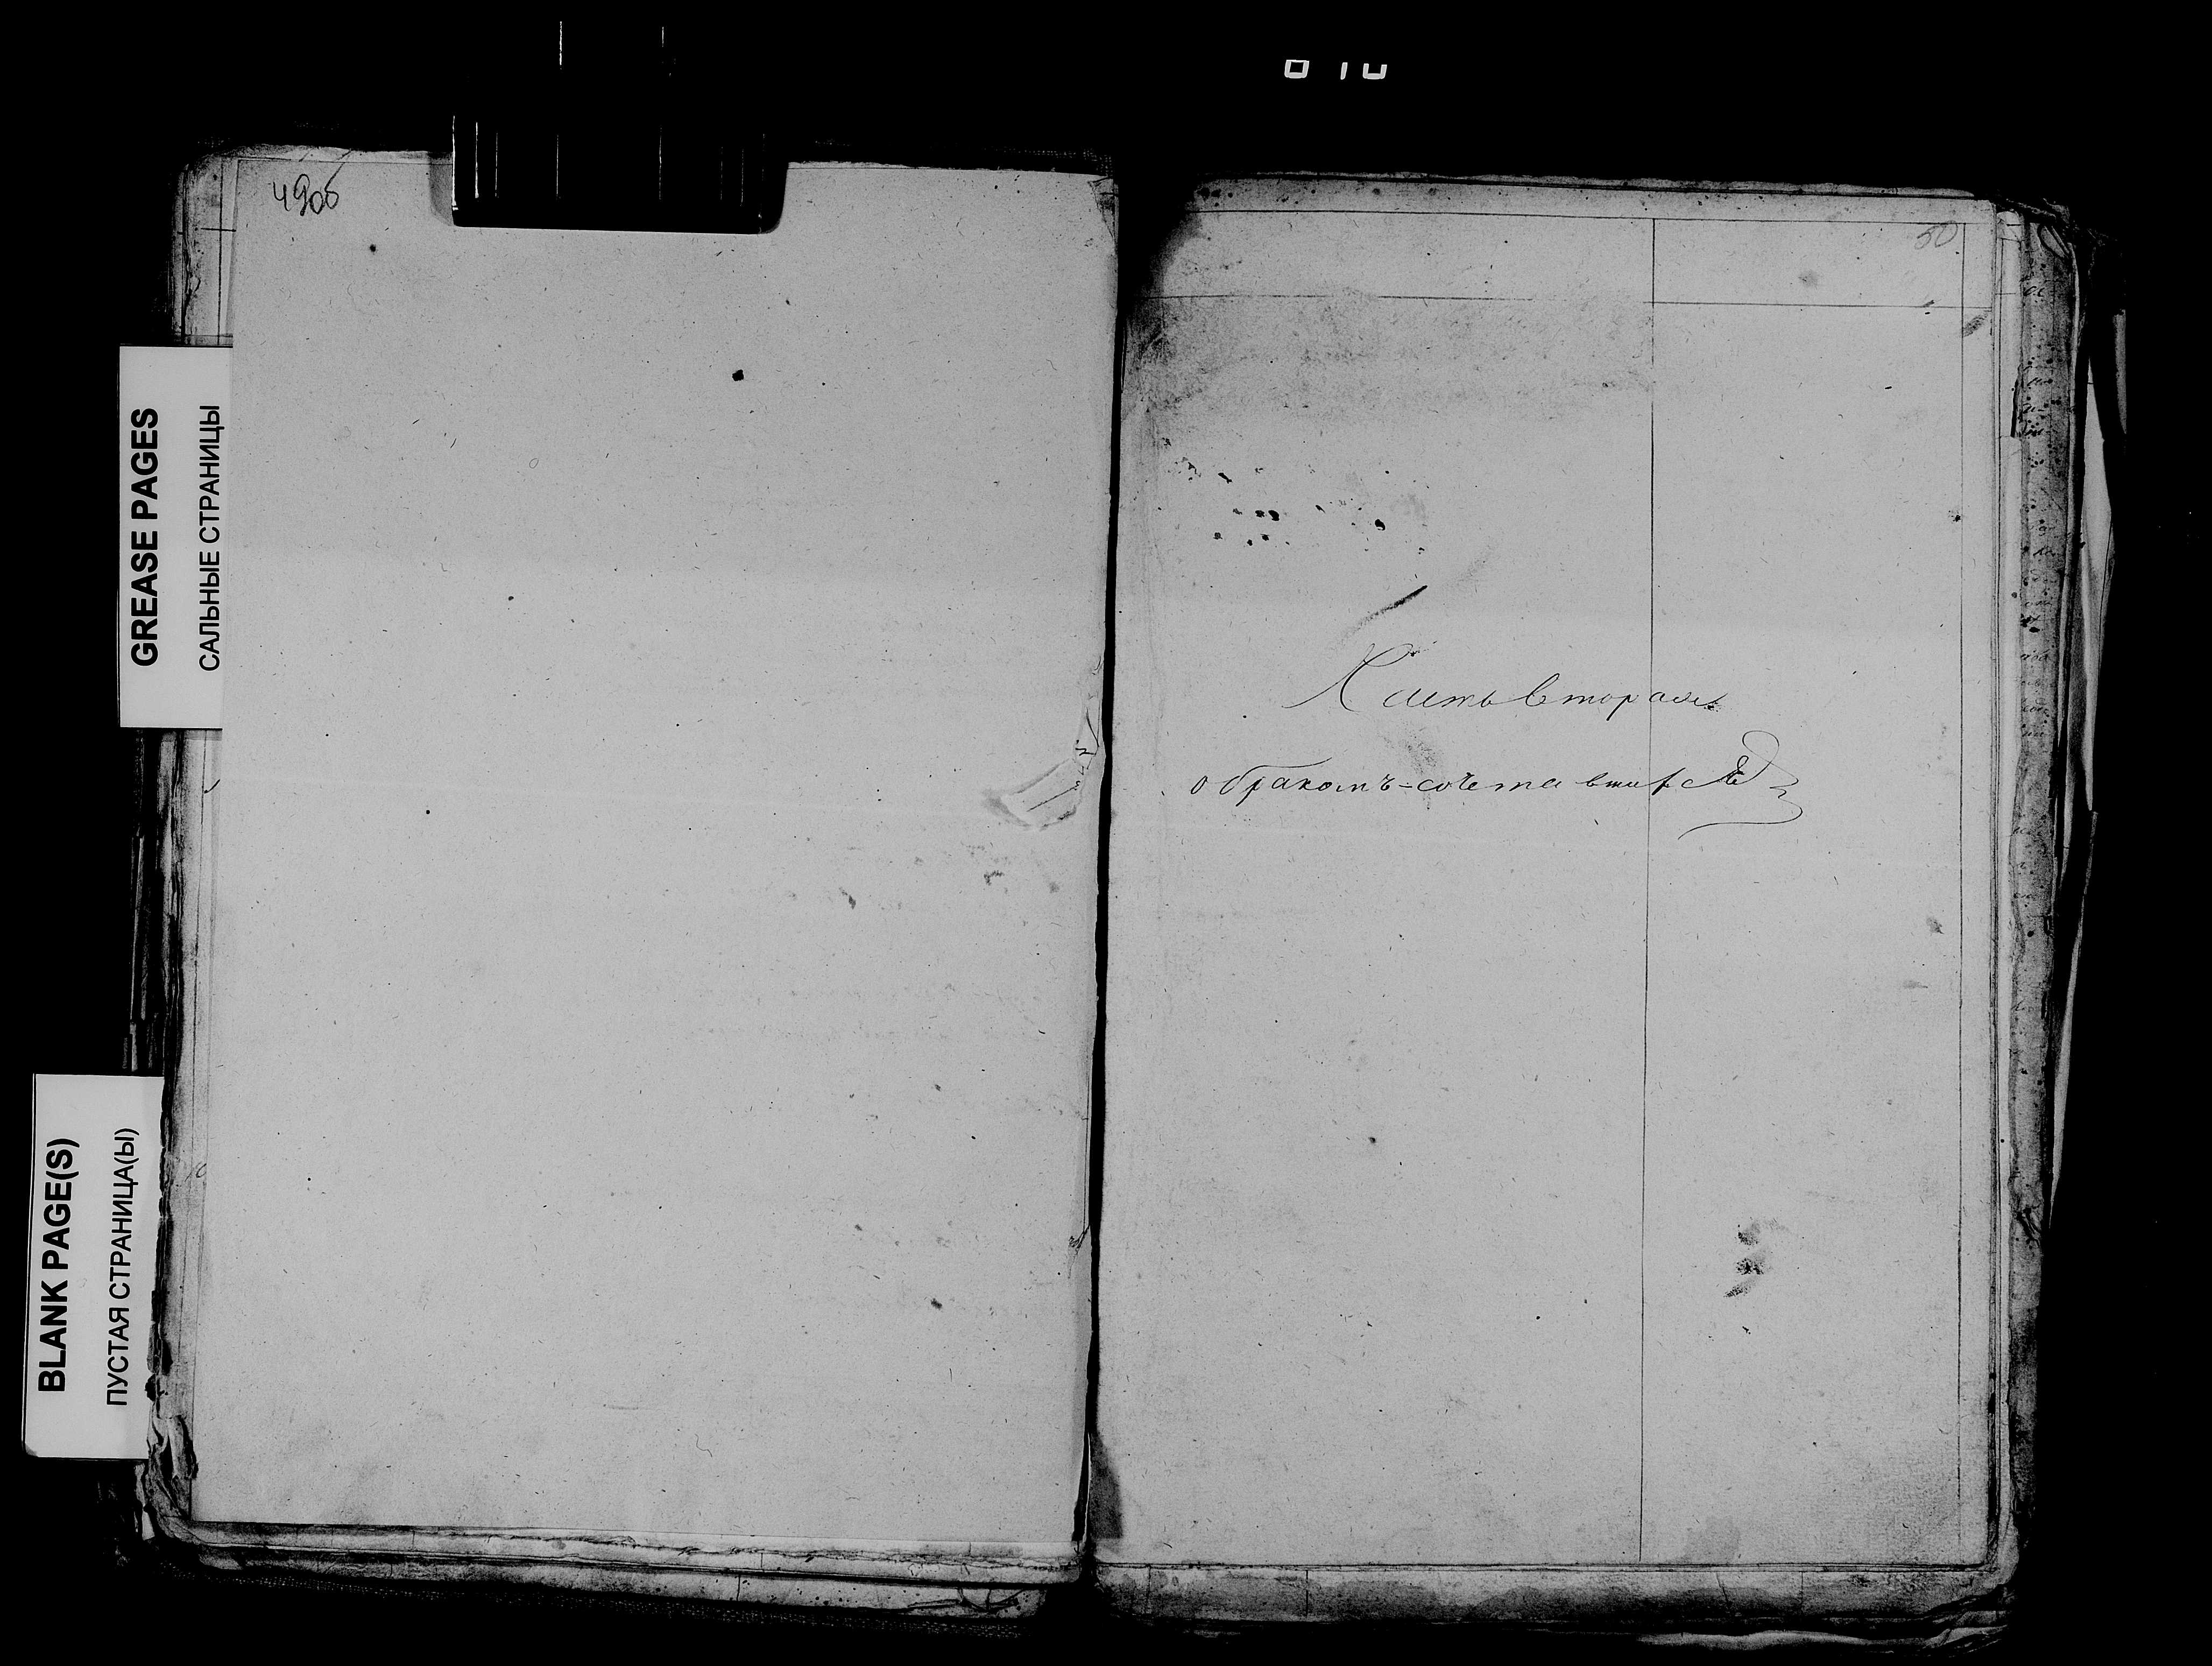 49об
50
GREASE PAGES
САЛЬНЫЕ СТРАНИЦЫ
BLANK PAGE(S)
ПУСТАЯ СТРАНИЦА(Ы)
Часть вторая
о бракомъ-сочетавшихся